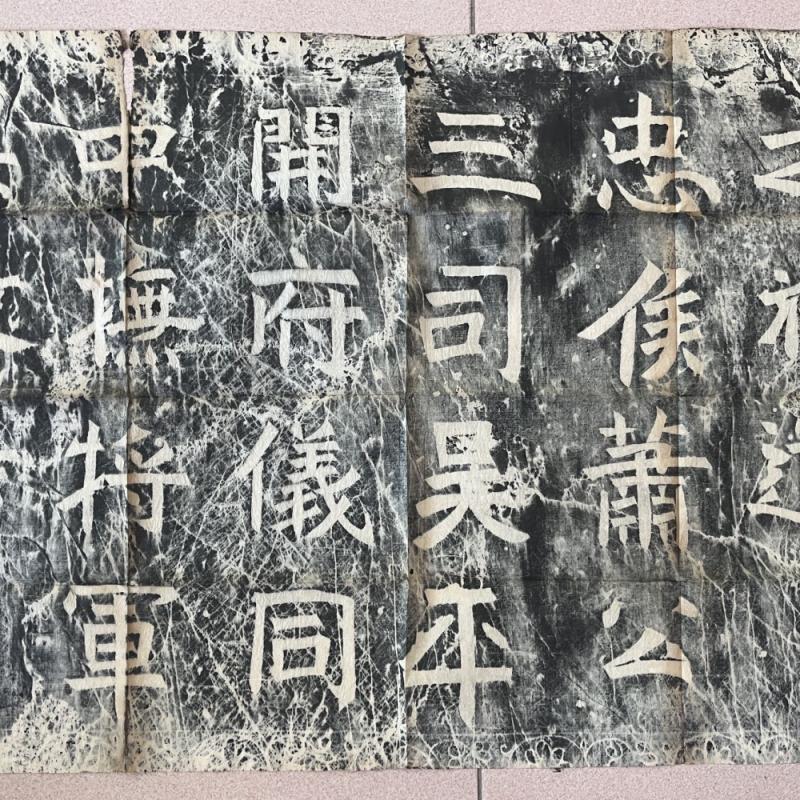 中撫將軍
開府儀同
三司吳平
忠侯蕭公